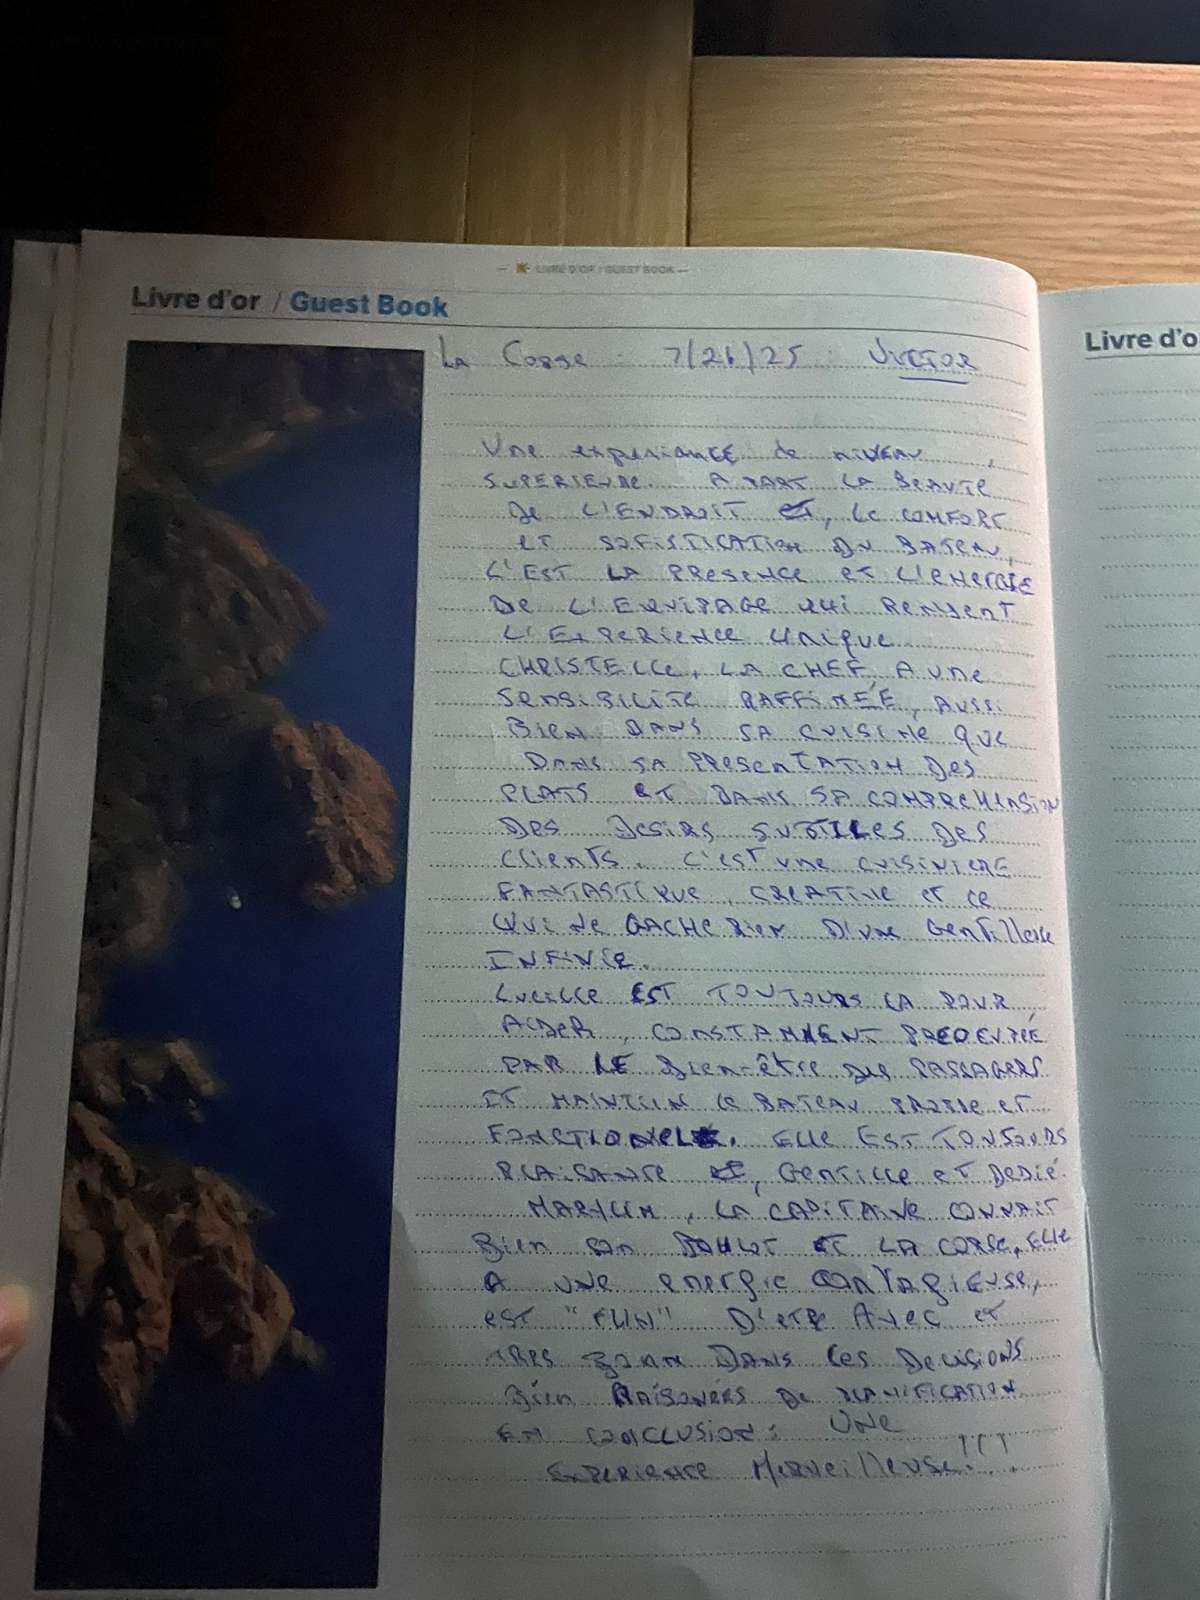 LIVRE D'OR / GUEST BOOK
Livre d'or / Guest Book
Livre d'o
La Corse : 7/26/25 :
Une experiance de niveau
superieure. A part la beaute
de l'endroit et, le comfort
et sofistication du bateau,
c'est la presence et l'energie
de l'equipage qui rendent
l'experience unique
Christelle, la chef, a une
sensibilité raffinée, aussi
bien dans sa cuisine que
dans sa presentation des
plats et dans sa comprehension
des desirs subtiles des
clients. C'est une cuisiniere
fantastique, creative et ce
qui ne gache rien d'une gentillesse
infinie.
Lucille est toujours la pour
aider, constamment
par le bien-être des passagers
et maintien le bateau propre et
fonctionel. Elle est toujours
plaisante et, gentille et dedié.
la capitaine connait
bien son boulot et la Corse, elle
a une energie contagieuse,
est "fun" d'etre avec et
tres bonne dans les decisions
bien raisonées de planification
En conclusion: une
experience merveilleuse!!!